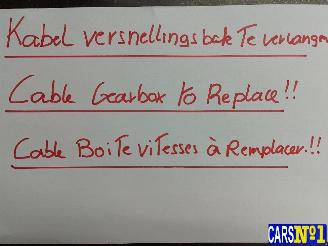 Kabel versnellingsbak Te vervangen
Cable Gearbox to Replace!!
Cable BoiTe viTesses à Remplacer!!
CARSNº1